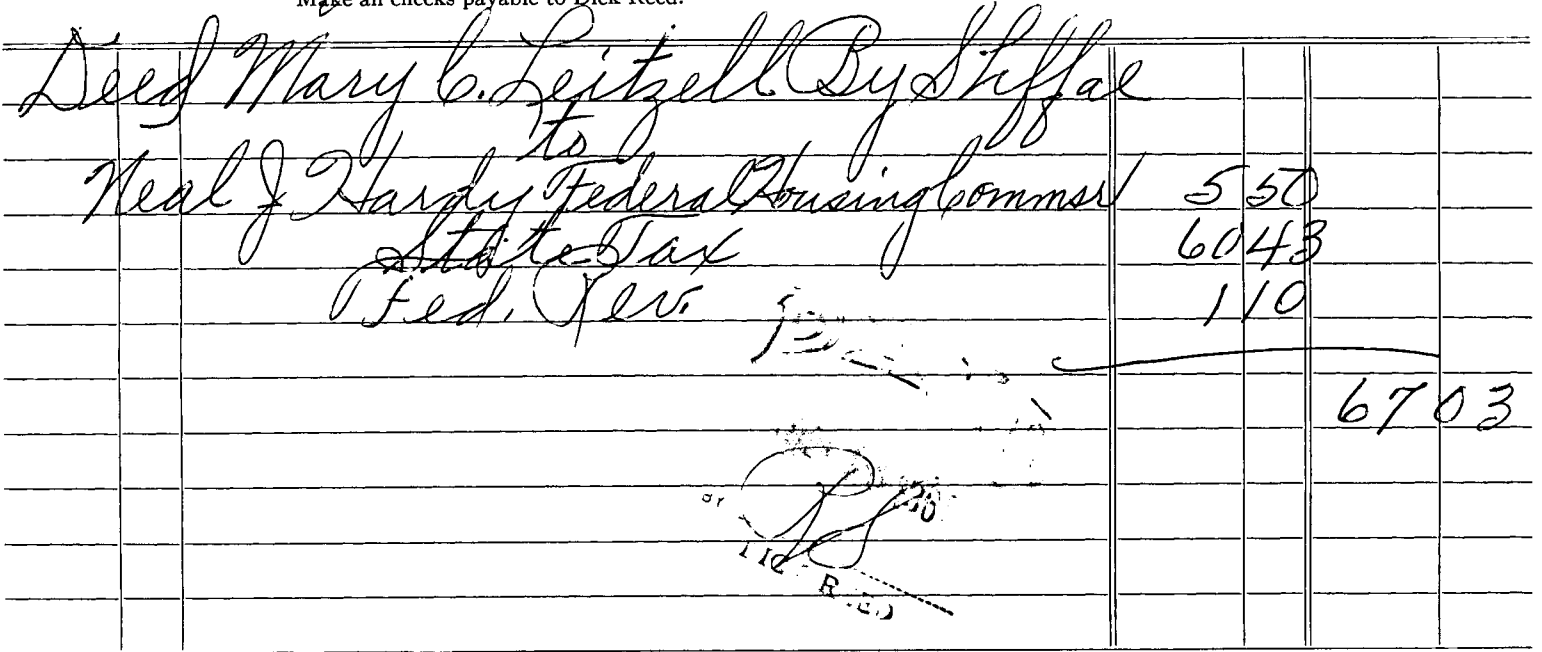 Make all checks payable to Dick Reed.
Deed Mary C. Leitzell By Shffae
to
Neal J Hardy Federal Housing Commsr 5 50
State Tax 60 43
Fed. Rev. 1 10
67 03